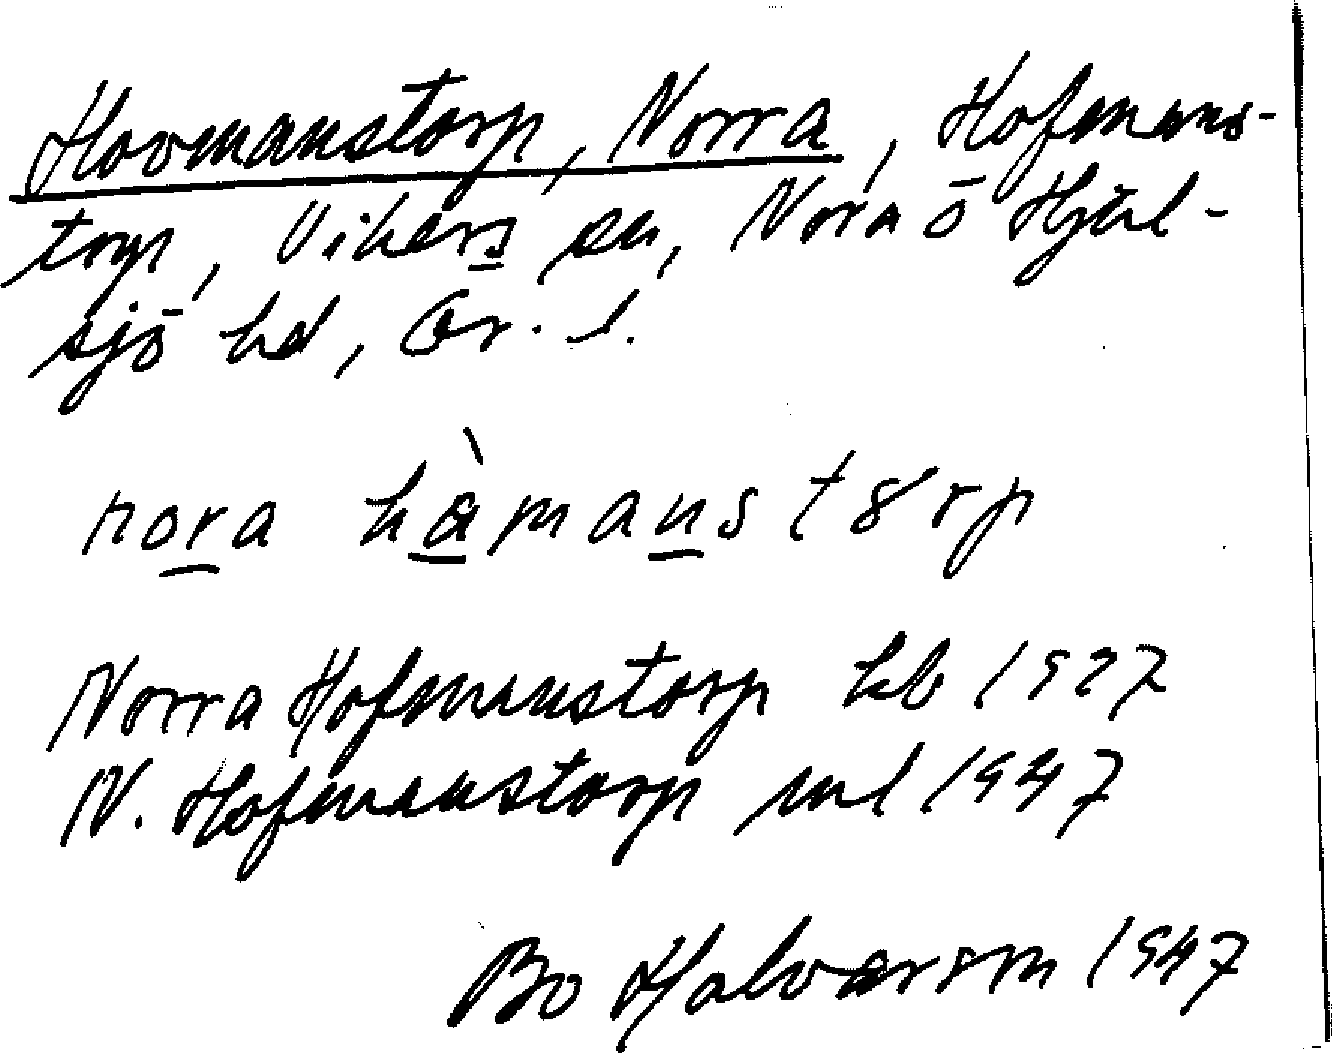 Hovmanstorp, Norra, Hofmans-
torp, Vikers sn, Nora o Hjul-
sjö hd, Ör. l.
nora hàmanstȣrp
Norra Hofmanstorp kb 1927
N. Hofmanstorp ml 1947
Bo Halvarson 1947